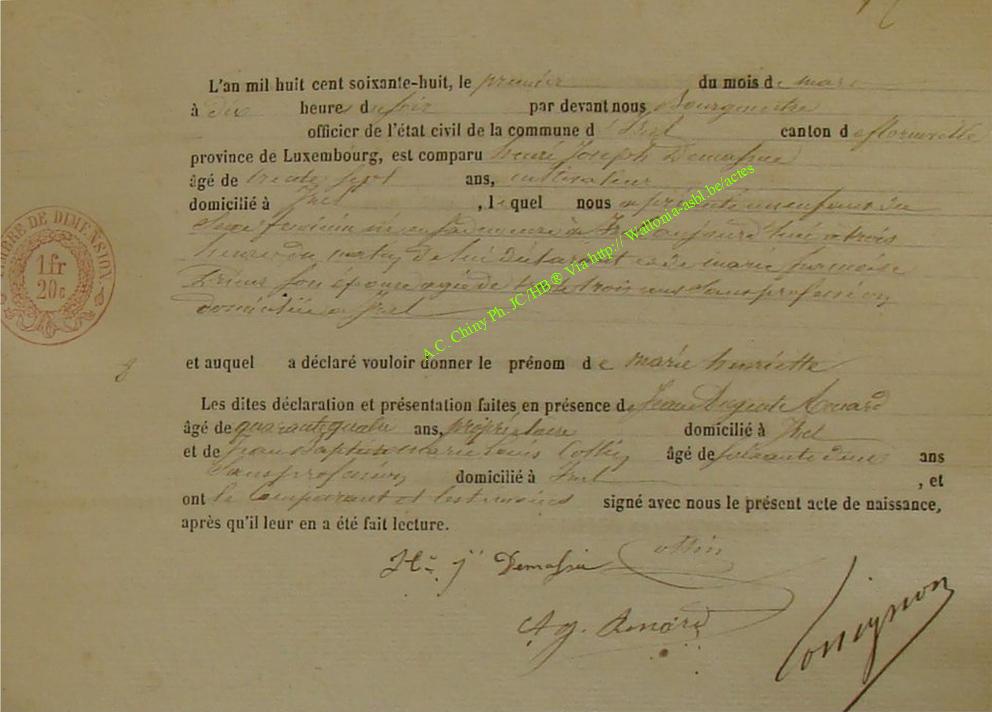 L'an mil huit cent soixante-huit, le premier du mois de mars
à dix heures du soir par devant nous Bourgmestre
officier de l'état civil de la commune d'Izel canton de florenville
province de Luxembourg, est comparu henri Joseph Demasine
âgé de trente sept ans, cultivateur
domicilié à Izel, lequel nous a présenté un enfant du
Sexe féminin né en sa demeure à Izel aujourd'hui à trois
heures du matin de lui déclarant et de marie
son épouse agée de trente trois ans Sans profession
domiciliée à Izel
et auquel a déclaré vouloir donner le prénom de marie henriette
Les dites déclaration et présentation faites en présence de Jean Auguste Renard
âgé de quarante quatre ans, propriétaire domicilié à Izel
et de Jean Baptiste Marie Louis Collin âgé de soixante deux ans
Sans profession domicilié à Izel, et
ont le Comparant et les témoins signé avec nous le présent acte de naissance,
après qu'il leur en a été fait lecture.
TIMBRE DE DIMENSION
1 fr
20 c
A.C. Chiny Ph. JC/HB® Via http:// Wallonia-asbl.be/actes